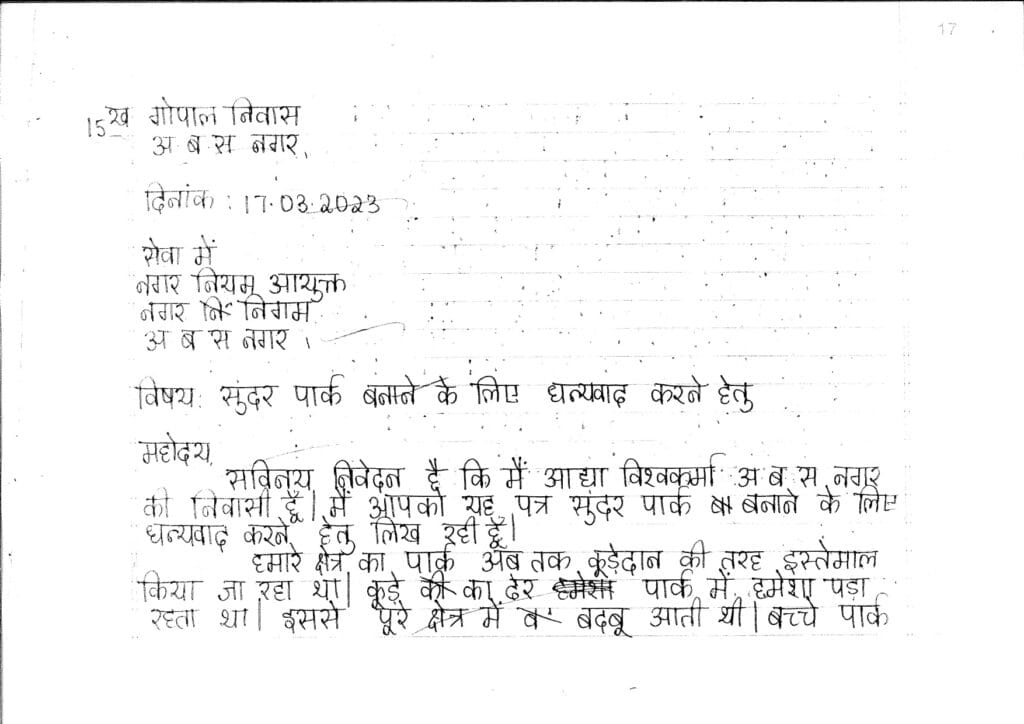 17
15ख गोपाल निवास
अ ब स नगर,
दिनांक : 17.03.2023
सेवा में
नगर नियम आयुक्त
नगर नि निगम
अ ब स नगर ।
विषय: सुंदर पार्क बनाने के लिए धन्यवाद करने हेतु
महोदय,
सविनय निवेदन है कि मैं आद्या विश्वकर्मा अ ब स नगर
की निवासी हूँ। मैं आपको यह पत्र सुंदर पार्क बनाने के लिए
धन्यवाद करने हेतु लिख रही हूँ।
हमारे क्षेत्र का पार्क अब तक कूड़ेदान की तरह इस्तेमाल
किया जा रहा था। कूड़े का ढेर हमेशा पार्क में हमेशा पड़ा
रहता था। इससे पूरे क्षेत्र में ब बदबू आती थी। बच्चे पार्क